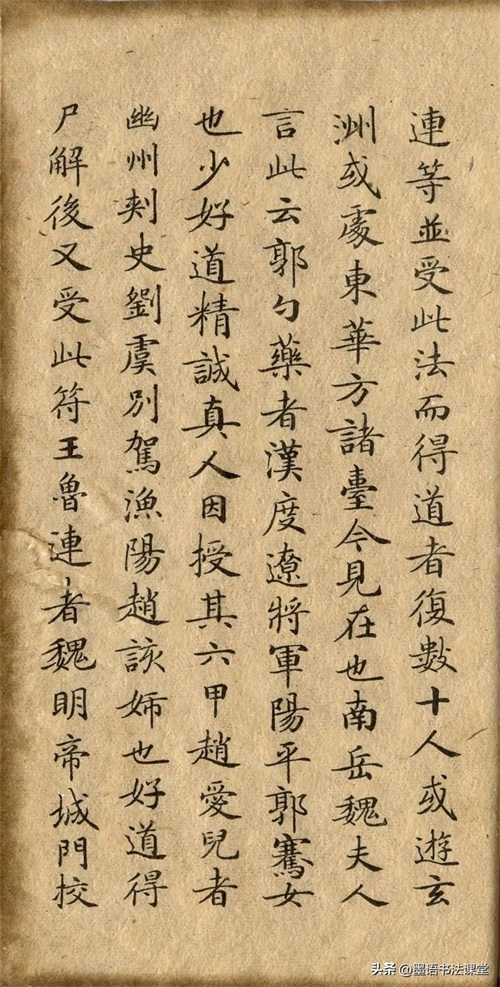 連等並受此法而得道者復數十人或遊玄
洲或處東華方諸臺今見在也南岳魏夫人
言此云郭勺藥者漢度遼將軍陽平郭騫女
也少好道精誠真人因授其六甲趙愛兒者
幽州刾史劉虞別駕漁陽趙該姊也好道得
尸解後又受此符王魯連者魏明帝城門校
头条@墨语书法课堂